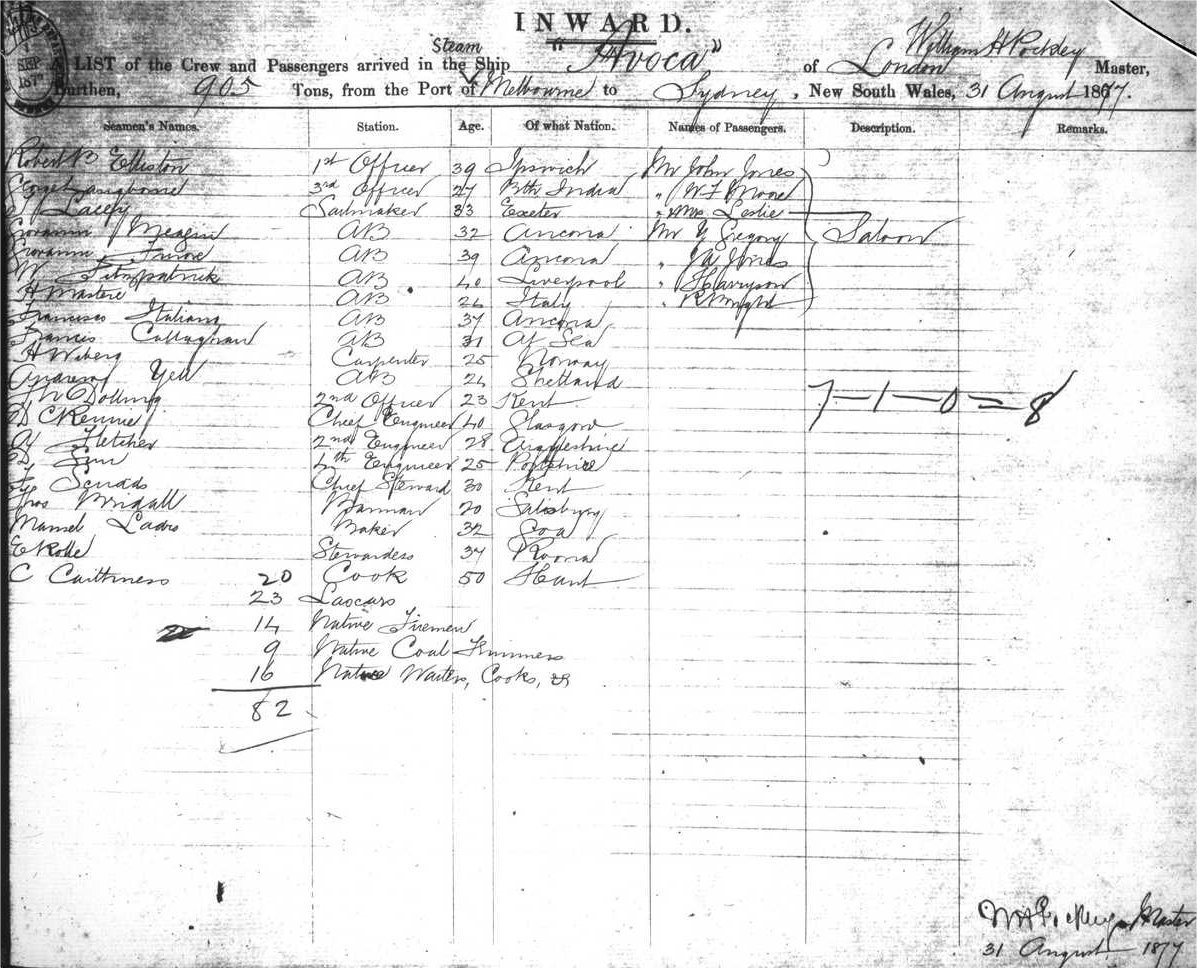 INWARD.
Steam "Avoca" William H Pockley
A LIST of the Crew and Passengers arrived in the Ship of London Master,
Burthen, 905 Tons, from the Port of Melbourne to Sydney, New South Wales, 31 August 1877.
Seamen's Names. Station. Age. Of what Nation. Names of Passengers. Description. Remarks.
Robert B Elliston 1st Officer 39 Ipswich Mr John Jones
George 3rd Officer 27 Bth India " W F Moore
Lacey Sailmaker 33 Exeter " Mrs Leslie
Giovanni AB 32 Ancona Mr Y Gregory Saloon
Giovanni AB 39 Ancona " J A Jones
W Fitzpatrick AB 40 Liverpool " Harryson
H AB 24 Italy " R Wright
Francisco Italiano AB 37 Ancona
Francis Callaghan AB 31 At Sea
H Wiberg Carpenter 25 Norway
Andrew Yell AB 24 Shetland
2nd Officer 23 Kent 7-1-0=8
D C Rennie Chief Engineer 40 Glasgow
A Fletcher 2nd Engineer 28 Argyleshire
D 4th Engineer 25
F Scudds Chief Steward 30 Kent
Thos Barman 20 Salisbury
Manuel Baker 32 Goa
E Rolle Stewardess 37
C Caithness 20 Cook 50
23 Lascars
14 Native Firemen
9 Native Coal Trimmers
16 Native Waiters, Cooks, &c
82
W H Pockley Master
31 August 1877